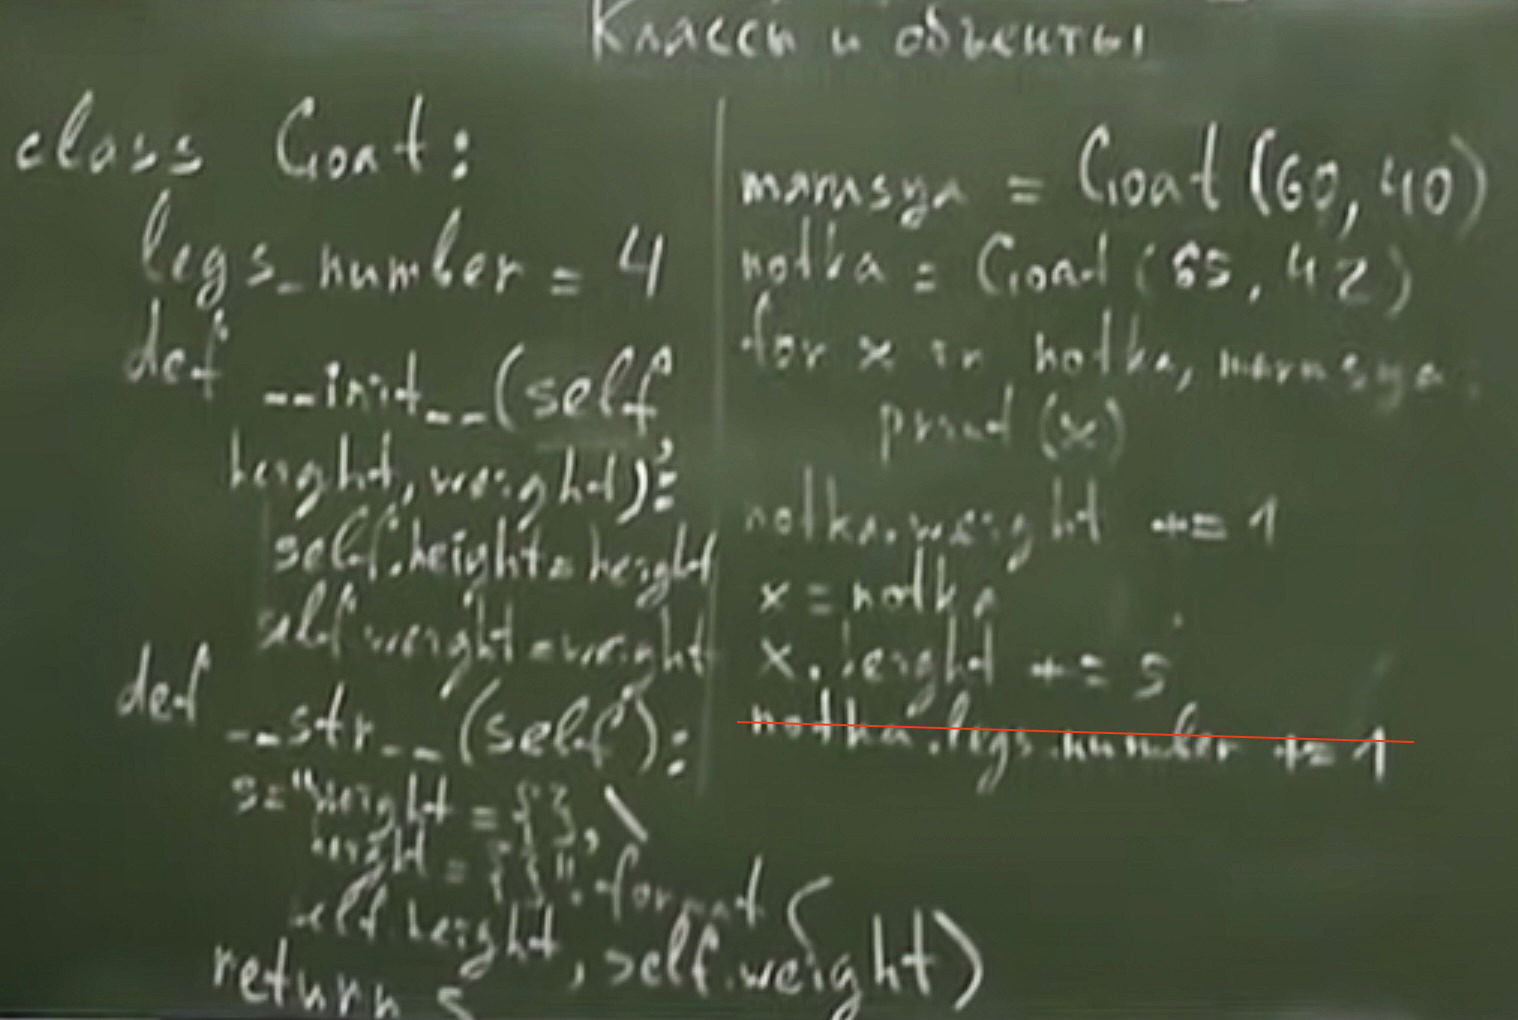 Классы и объекты
class Goat:
legs_number = 4
def __init__(self,
height, weight):
self.height = height
self.weight = weight
def __str__(self):
s="height = {}, \
weight = {}".format(
self.height, self.weight)
return s
marusya = Goat(60, 40)
notka = Goat(65, 42)
for x in notka, marusya:
print(x)
notka.weight += 1
x = notka
x.height += 5
notka.legs_number += 1